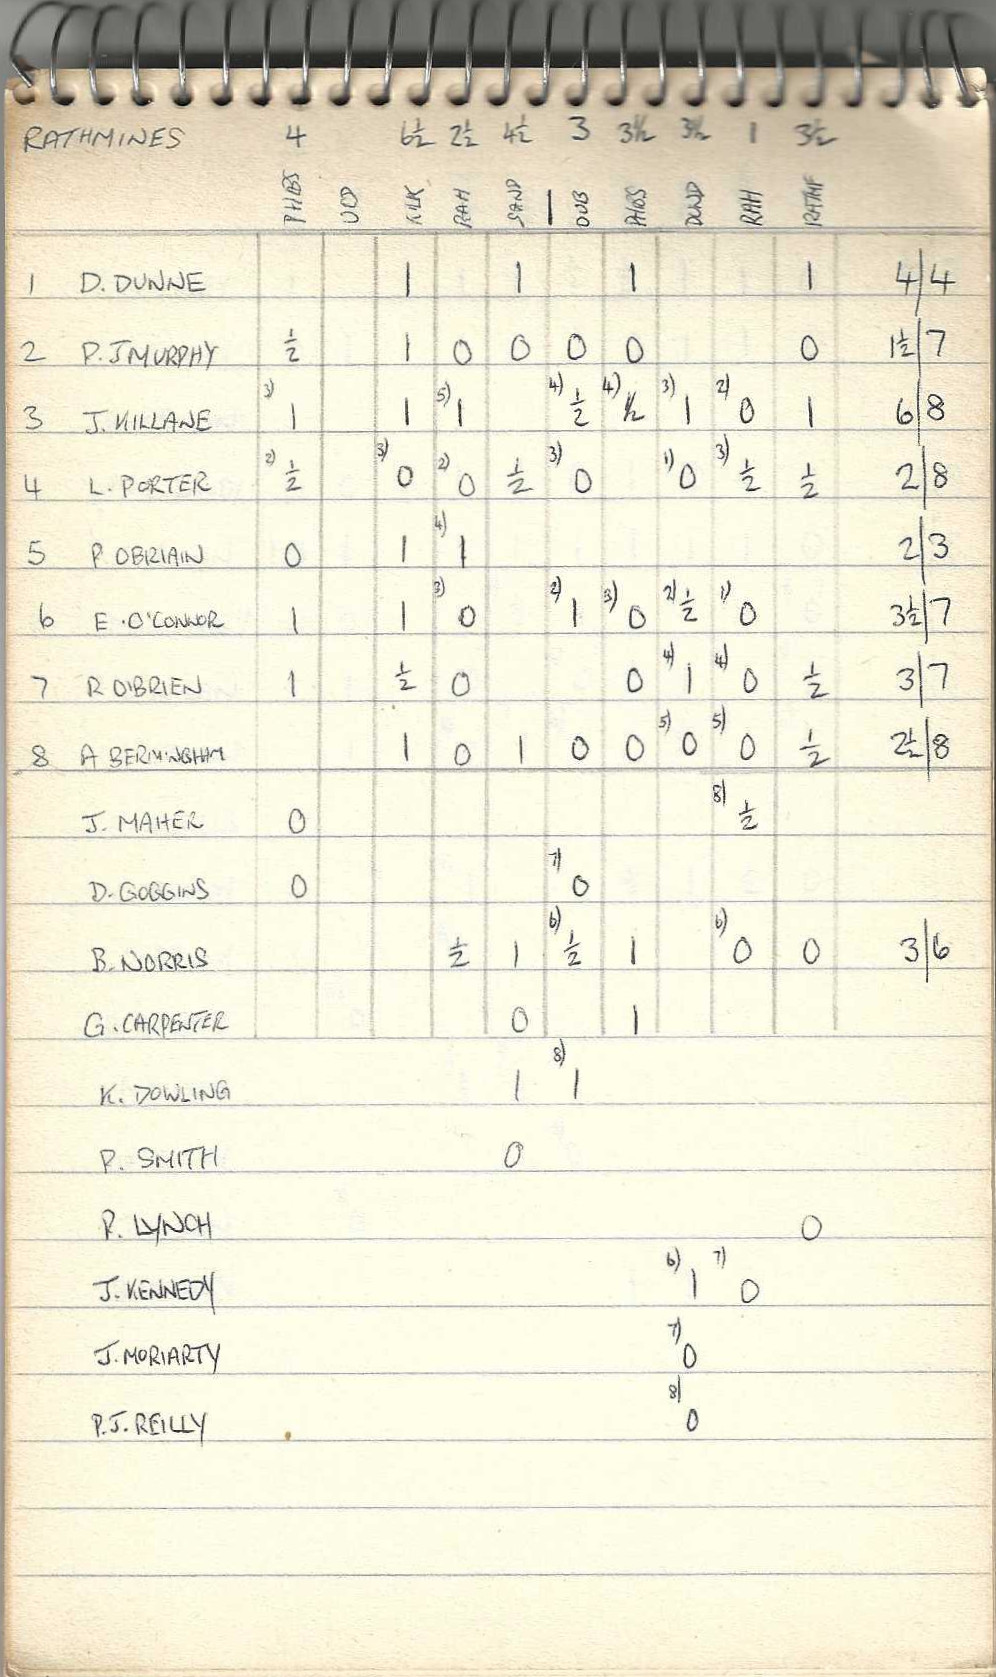 RATHMINES 4 6½ 2½ 4½ 3 3½ 3½ 1 3½
PHIBS UCD KLK RAH SAND DUB PHIBS DUND RAH RATHF
1 D. DUNNE 1 1 1 1 4/4
2 P. J MURPHY ½ 1 0 0 0 0 0 1½/7
3 J. KILLANE 3) 1 1 5) 1 4) ½ 4) ½ 3) 1 2) 0 1 6/8
4 L. PORTER 2) ½ 3) 0 2) 0 ½ 3) 0 1) 0 3) ½ ½ 2/8
5 P OBRIAIN 0 1 4) 1 2/3
6 E. O'CONNOR 1 1 3) 0 2) 1 3) 0 2) ½ 1) 0 3½/7
7 R O'BRIEN 1 ½ 0 0 4) 1 4) 0 ½ 3/7
8 A BERMINGHAM 1 0 1 0 0 5) 0 5) 0 ½ 2½/8
J. MAHER 0 8) ½
D. GOGGINS 0 7) 0
B. NORRIS ½ 1 6) ½ 1 6) 0 0 3/6
G. CARPENTER 0 1
K. DOWLING 1 8) 1
P. SMITH 0
P. LYNCH 0
J. KENNEDY 6) 1 7) 0
J. MORIARTY 7) 0
P.J. REILLY 8) 0